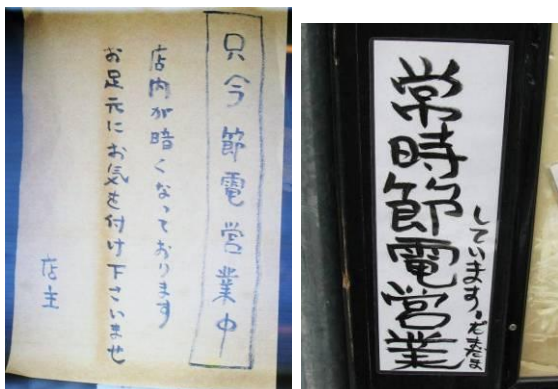 只今節電営業中
店内が暗くなっております
お足元にお気を付け下さいませ
店主
常時節電営業
しています。